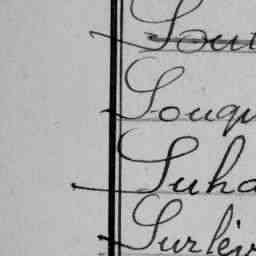 Sout
Souqu
Suha
Surlév